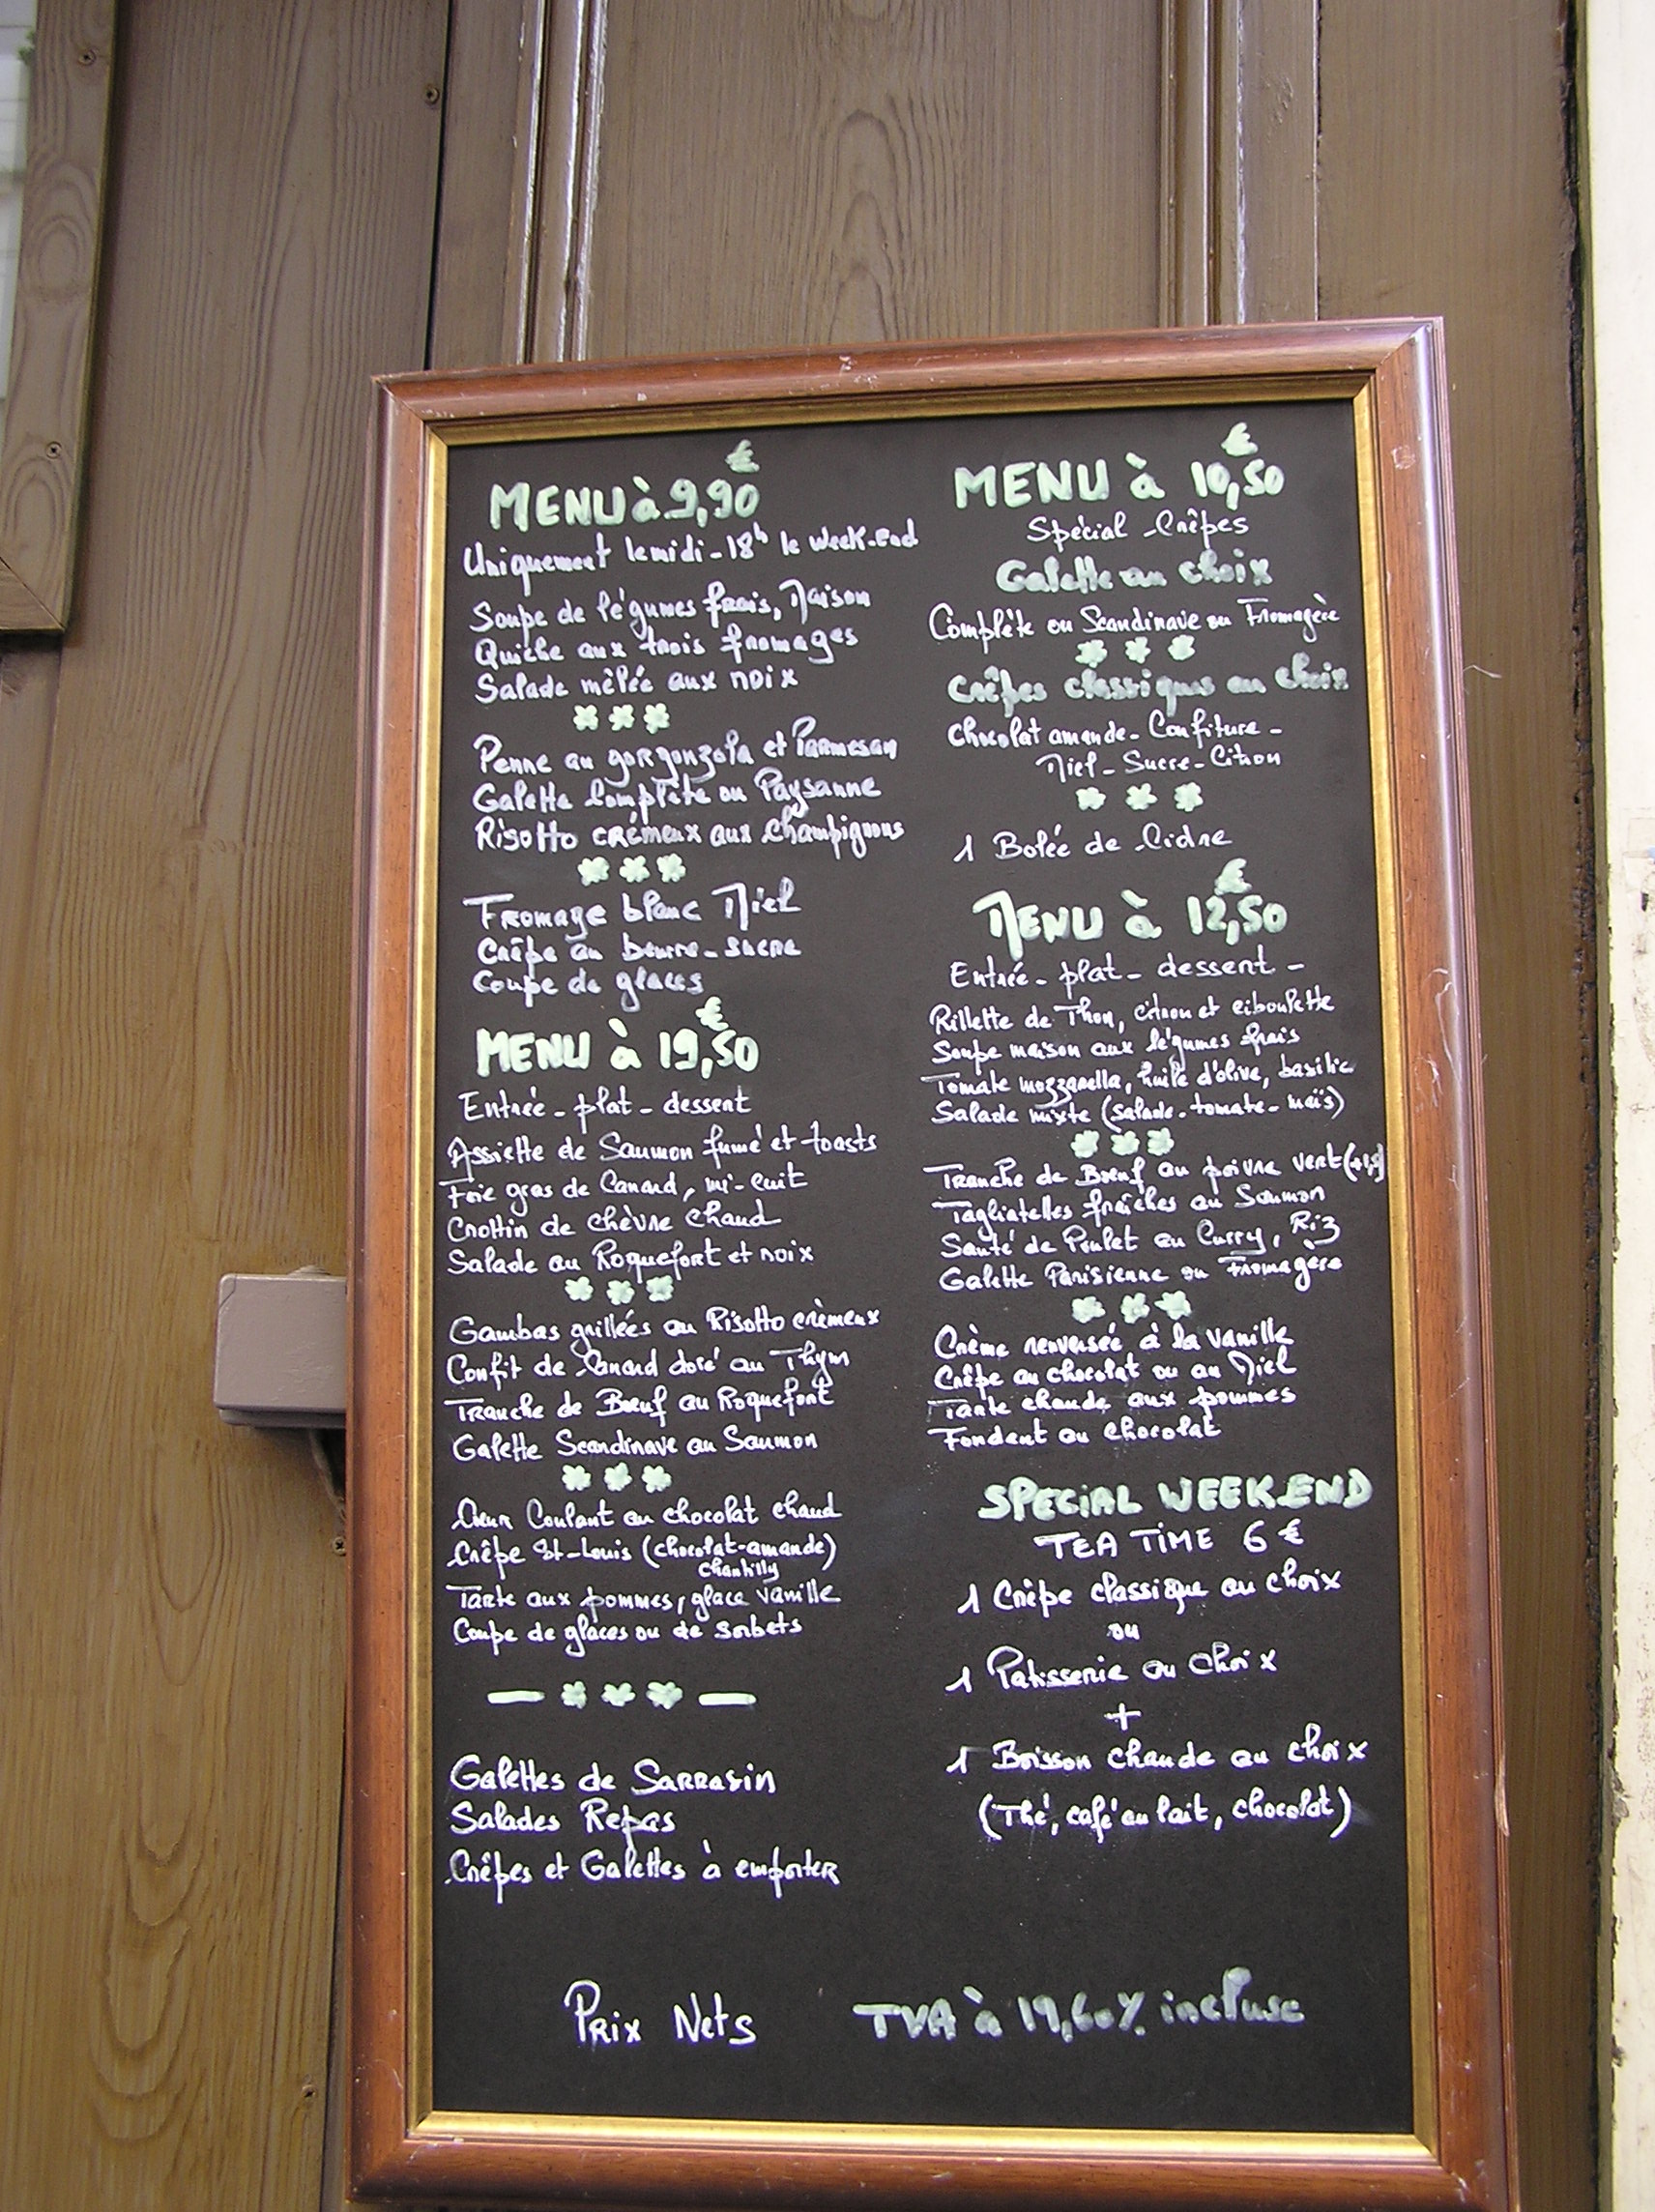 MENU à 9,90 €
Uniquement le midi - 18h le week-end
Soupe de légumes frais, Maison
Quiche aux trois fromages
Salade mêlée aux noix
Penne au gorgonzola et Parmesan
Galette Complète ou Paysanne
Risotto crémeux aux champignons
Fromage blanc Miel
Crêpe au beurre-sucre
Coupe de glaces
MENU à 19,50 €
Entrée - plat - dessert
Assiette de Saumon fumé et toasts
Foie gras de Canard, mi-cuit
Crottin de chèvre chaud
Salade au Roquefort et noix
Gambas grillées au Risotto crèmeux
Confit de Canard doré au Thym
Tranche de Bœuf au Roquefort
Galette Scandinave au Saumon
Cœur Coulant au chocolat chaud
Crêpe St-Louis (chocolat-amande)
chantilly
Tarte aux pommes, glace vanille
Coupe de glaces ou de sorbets
Galettes de Sarrasin
Salades Repas
Crêpes et Galettes à emporter
MENU à 10,50 €
Spécial Crêpes
Galette au choix
Complète ou Scandinave ou Fromagère
Crêpes classiques au choix
Chocolat amande - Confiture -
Miel - Sucre - Citron
1 Bolée de Cidre
MENU à 12,50 €
Entrée - plat - dessert -
Rillette de Thon, citron et ciboulette
Soupe maison aux légumes frais
Tomate mozzarella, huile d'olive, basilic
Salade mixte (salade - tomate - maïs)
Tranche de Bœuf au poivre vert
Tagliatelles fraîches au Saumon
Sauté de Poulet au Curry, Riz
Galette Parisienne ou Fromagère
Crème renversée à la vanille
Crêpe au chocolat ou au Miel
Tarte chaude aux pommes
Fondant au chocolat
SPECIAL WEEK-END
TEA TIME 6 €
1 Crêpe classique au choix
ou
1 Patisserie au choix
+
1 Boisson chaude au choix
(Thé, café au lait, chocolat)
Prix Nets TVA à 19,60% incluse